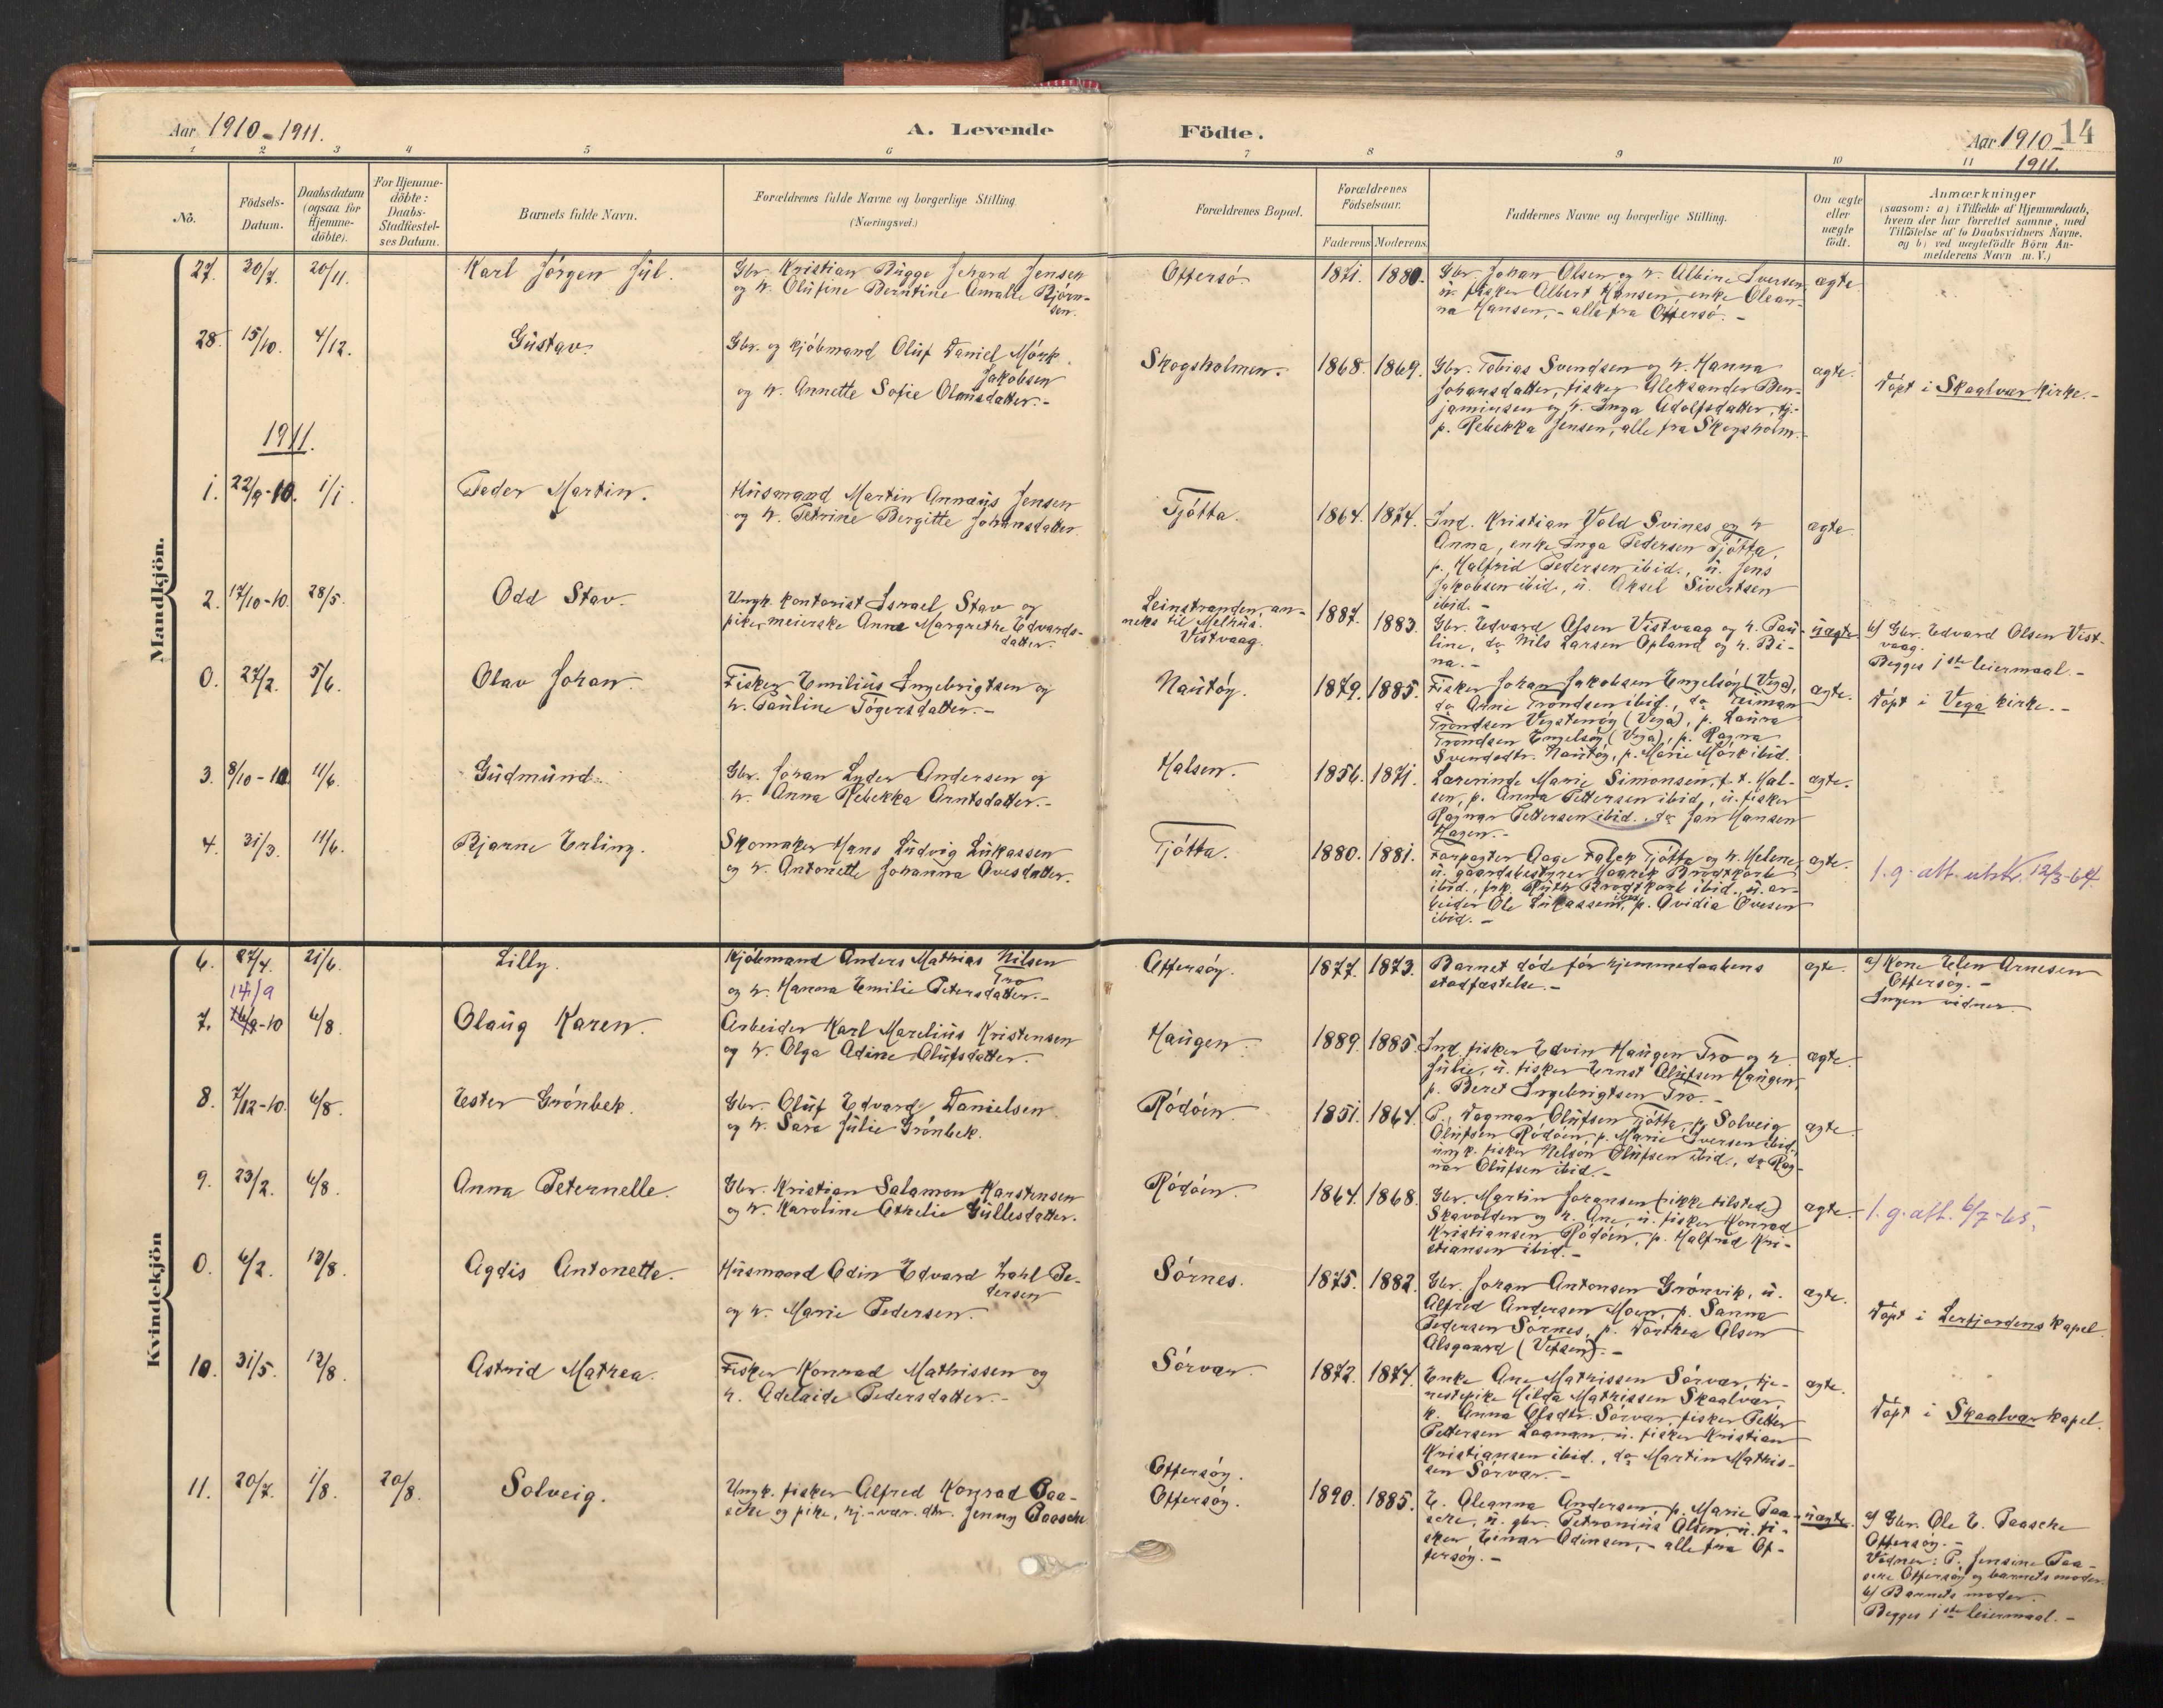 Aar 1910-1911.
A. Levende Födte.
Aar 1910- 14
1911.
1 2 3 4 5 6 7 8 9 10 11
No.
Födsels-
Datum.
Daabsdatum
(ogsaa for
Hjemme-
döbte).
For Hjemme-
döbte:
Daabs-
Stadfæstel-
ses Datum.
Barnets fulde Navn.
Forældrenes fulde Navne og borgerlige Stilling.
(Næringsvei.)
Forældrenes Bopæl.
Forældrenes
Födselsaar.
Faderens Moderens
Faddernes Navne og borgerlige Stilling.
Om ægte
eller
uægte
födt.
Anmærkninger
(saasom: a) i Tilfælde af Hjemmedaab,
hvem der har forrettet samme, med
Tilföielse af to Daabsvidners Navne.
og b) ved uægtefödte Börn An-
melderens Navn m. V.)
Mandkjön.
27. 30/7. 20/11. Karl Jörgen Jül.
Gbr. Kristian Bügge Jehard Jensen
og h. Olüfine Berntine Amalie Björn-
sen.
Offersö. 1871. 1880.
Gbr. Johan Olsen og h. Albine Iversen,
ü. fisker Albert Hansen, enke Olean-
na Hansen, - alle fra Offersö. -
ægte.
28. 15/10. 4/12. Güstav.
Gbr. og kjöbmand Olüf Daniel Mörk
Jakobsen
og h. Annette Sofie Olaüsdatter. -
Skogsholmen. 1868. 1869.
Gbr. Tobias Svendsen og h. Hanna
Johansdatter, fisker Aleksander Ben-
jaminsen og h. Inga Adolfsdatter, tj.-
p. Rebekka Jensen, alle fra Skogsholm. -
ægte.
Döpt i Skaalvær kirke. -
1911.
1. 22/9-10. 1/1. Peder Martin.
Hüsmand Martin Annæüs Jensen
og h. Petrine Bergitte Johansdatter
Tjötta. 1864. 1874.
Ind. Kristian Vold Svines og h
Anna, enke Inga Pedersen Tjötta,
p. Halfrid Pedersen ibid., ü. Jens
Jakobsen ibid., ü. Aksel Sivertsen
ibid. -
ægte.
2. 17/10-10. 28/5. Odd Stav.
Ungk. kontorist Israel Stav og
pike, meierske Anna Margrethe Edvards-
datter.
Leinstranden, an-
neks til Melhüs.
Vistvaag.
1887. 1883.
Gbr. Edvard Olsen Vistvaag og h. Paü-
line, do Nils Larsen Opland og h. Bi-
na. -
üægte
b) Gbr. Edvard Olsen Vist-
vaag.
Begges 1ste leiermaal. -
0. 27/2. 5/6. Olav Johan.
Fisker Emiliüs Ingebrigtsen og
h. Paüline Tögersdatter. -
Naütöy. 1879. 1885.
Fisker Johan Jakobsen Engelsöy (Vega),
do Arne Trondsen ibid., do Teiman
Trondsen Vegstenöy (Vega), p. Laüra
Trondsen Engelsöy (Vega), p. Ragna
Svendsdtr. Naütöy, p. Marie Mörk ibid.
ægte.
Döpt i Vega kirke. -
3. 8/10-10. 11/6. Güdmünd.
Gbr. Johan Lyder Andersen og
h. Anna Rebekka Arntsdatter. -
Halsen. 1856. 1871.
Lærerinde Marie Simonsen, f. t. Hal-
sen, p. Anna Pettersen ibid., ü. fisker
Ragnar Pettersen ibid., do Jan Hansen
Hagen. -
ægte.
4. 31/3. 11/6. Bjarne Erling.
Skomaker Hans Lüdvig Lükassen
og h. Antonette Johanna Ovesdatter.
Tjötta. 1880. 1881.
Forpagter Aage Falck Tjötta og h. Helene,
ü. gaardsbestyrer Henrik Brodtkorb
ibid., frk. Rüth Brodtkorb ibid., ü. ar-
beider Ole Lükassen ibid, p. Ovidia Ovesen
ibid. -
ægte.
1. g. att. utstr. 12/3-64.
Kvindekjön
6. 27/4. 21/6. Lilly.
Kjöbmand Anders Mathias Nilsen
Tro
og h. Hanna Emilie Petersdatter. -
Offersöy. 1877. 1873.
Barnet döde för hjemmedaabens
stadfæstelse. -
ægte.
a) Kone Elen Arnesen
Offersöy. -
Ingen vidner.
14/9
7. 16/9-10 6/8. Olaüg Karen.
Arbeider Karl Mareliüs Kristensen
og h. Olga Adine Olüfsdatter. -
Haügen. 1889. 1885.
Ind. fisker Edvin Haügen Tro og h
Jülie, ü. fisker Ernst Olüfsen Haügen,
p. Beret Ingebrigtsen Tro. -
ægte.
8. 7/12-10. 6/8. Ester Grönbek.
Gbr. Olüf Edvard Danielsen
og h. Sara Jülie Grönbek.
Rödöen. 1851. 1864.
P. Dagmar Olüfsen Tjötta, p. Solveig
Olüfsen Rödöen, p. Marie Iversen ibid,
üngk. fisker Nelson Olüfsen ibid., do Rag-
nar Olüfsen ibid. -
ægte.
9. 23/2. 6/8. Anna Peternelle.
Gbr. Kristian Salamon Karstensen
og h. Karoline Othelie Güllesdatter.
Rödöen. 1864. 1868.
Gbr. Martin Johansen (ikke tilstede)
Skavolden og h. Ane, ü. fisker Konrad
Kristiansen Rödöen, p. Halfrid Kri-
stiansen ibid. -
ægte.
1. g. att. 6/7-65.
0. 6/2. 13/8. Agdis Antonette.
Hüsmand Odin Edvard Zahl Pe-
dersen
og h. Marie Pedersen.
Sörnes. 1875. 1882.
Gbr. Johan Antonsen Grönvik, ü.
Alfred Andersen Moen, p. Sanna
Pedersen Sörnes, p. Dorthea Olsen
Alsgaard (Vefsen). -
ægte.
Döpt i Leirfjordens kapel.
10. 31/5. 13/8. Astrid Mathea.
Fisker Konrad Mathissen og
h. Adelaide Pedersdatter. -
Sörvær. 1872. 1874.
Enke Ane Mathissen Sörvær, tje-
nestepike Hilda Mathissen Skaalvær,
k. Anna Olsdtr. Sörvær, fisker Petter
Pettersen Laanan, ü. fisker Kristian
Kristiansen ibid., do Martin Mathis-
sen Sörvær. -
ægte.
Döpt i Skaalvær kapel.
11. 20/7. 1/8. 20/8. Solveig.
Ungk. fisker Alfred Konrad Paa-
sche og pike, hj.-vær. dtr. Jenny Paasche
Offersöy.
Offersöy.
1890. 1885.
E. Oleanna Andersen, p. Marie Paa-
sche, ü. gbr. Petroniüs Olsen, ü. fi-
sker Einar Odinsen, - alle fra Of-
fersöy. -
üægte.
a) Gbr. Ole E. Paasche
Offersöy. -
Vidner: P. Jensine Paa-
sche Offersöy og barnets moder.
b) Barnets moder.
Begges 1ste leiermaal. -